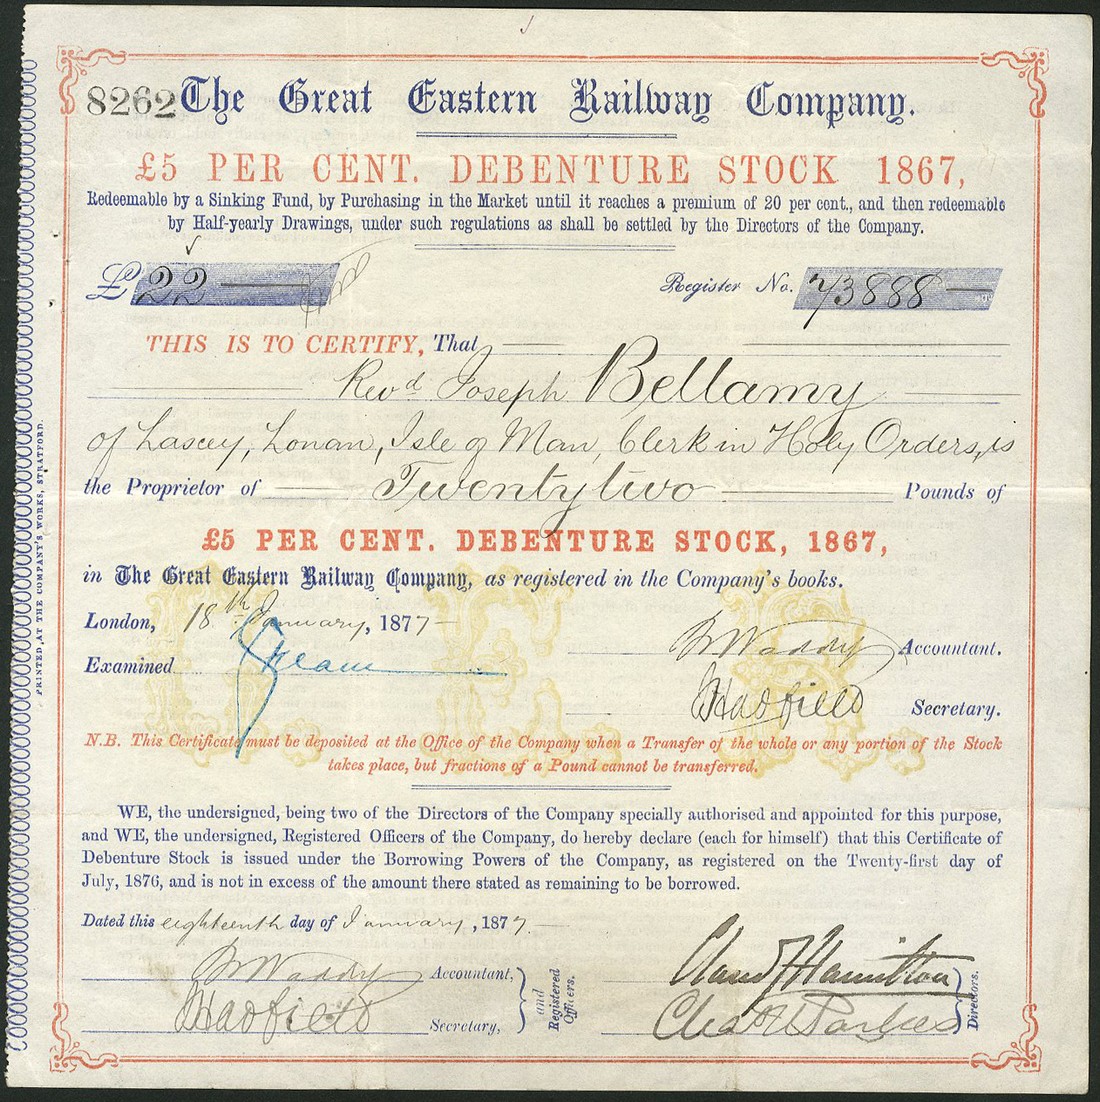 8262 The Great Eastern Railway Company.
£5 PER CENT. DEBENTURE STOCK 1867,
Redeemable by a Sinking Fund, by Purchasing in the Market until it reaches a premium of 20 per cent., and then redeemable
by Half-yearly Drawings, under such regulations as shall be settled by the Directors of the Company.
£ 22 Register No. 73888
THIS IS TO CERTIFY, That
Revd Joseph Bellamy
of Laxey, Lonan, Isle of Man, Clerk in Holy Orders, is
the Proprietor of Twentytwo Pounds of
£5 PER CENT. DEBENTURE STOCK, 1867,
in The Great Eastern Railway Company, as registered in the Company's books.
London, 18th January, 1877
Accountant.
Examined
Hadfield Secretary.
G. E. R.
N.B. This Certificate must be deposited at the Office of the Company when a Transfer of the whole or any portion of the Stock
takes place, but fractions of a Pound cannot be transferred.
WE, the undersigned, being two of the Directors of the Company specially authorised and appointed for this purpose,
and WE, the undersigned, Registered Officers of the Company, do hereby declare (each for himself) that this Certificate of
Debenture Stock is issued under the Borrowing Powers of the Company, as registered on the Twenty-first day of
July, 1876, and is not in excess of the amount there stated as remaining to be borrowed.
Dated this eighteenth day of January, 1877.
Accountant,
Hadfield Secretary,
and
Registered
Officers.
Claud J Hamilton
Chas H Parkes
Directors.
PRINTED AT THE COMPANY'S WORKS, STRATFORD.